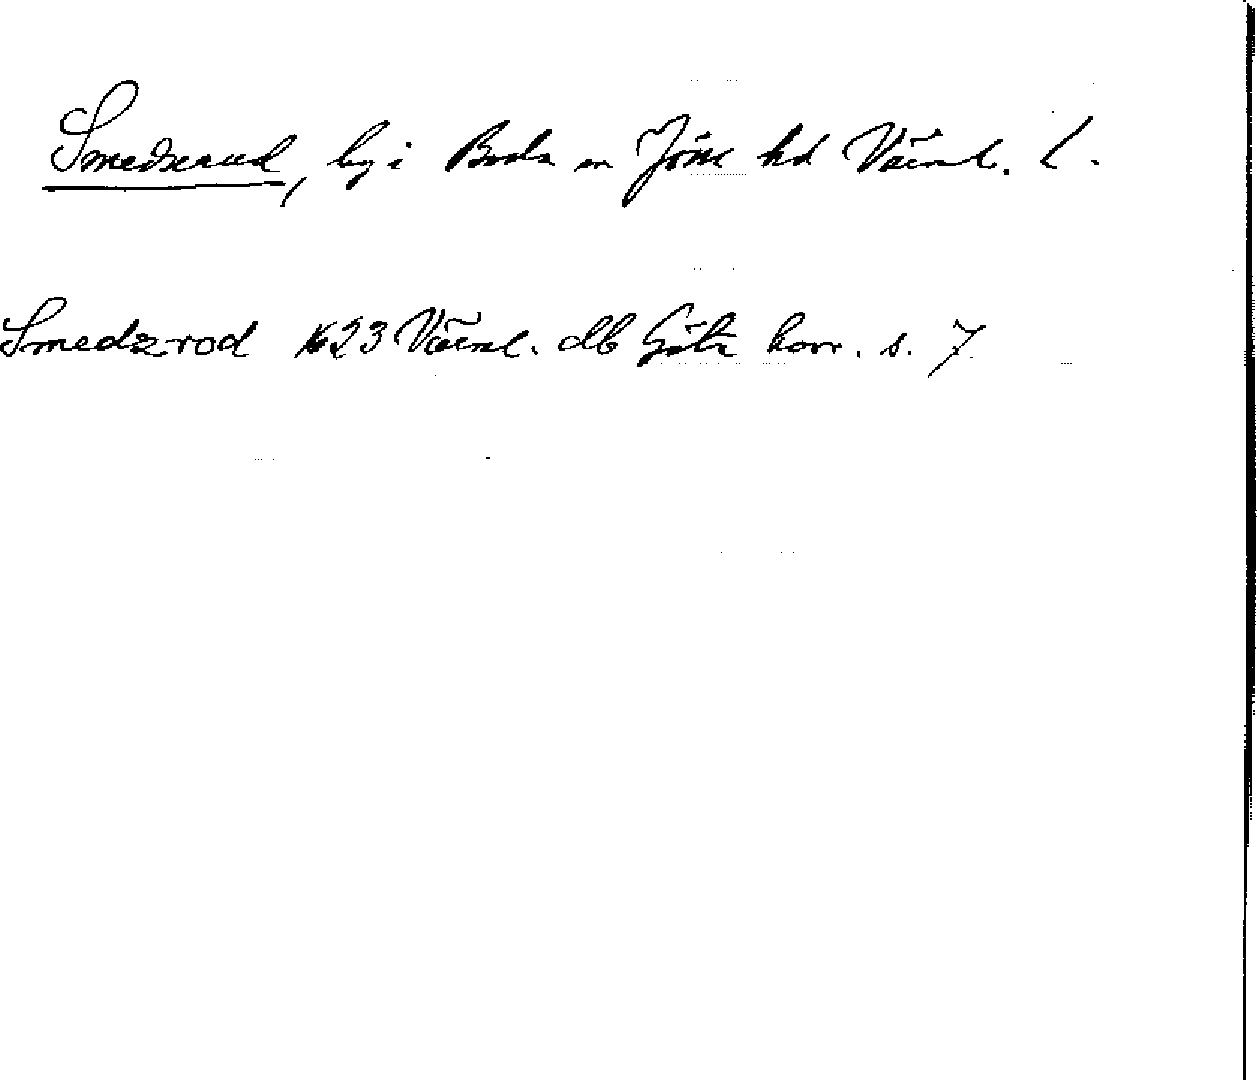 Smedserud, by i Boda sn Jösse hd Värml. l.
Smedzrod 1623 Värml. db Göta hovr. s. 7